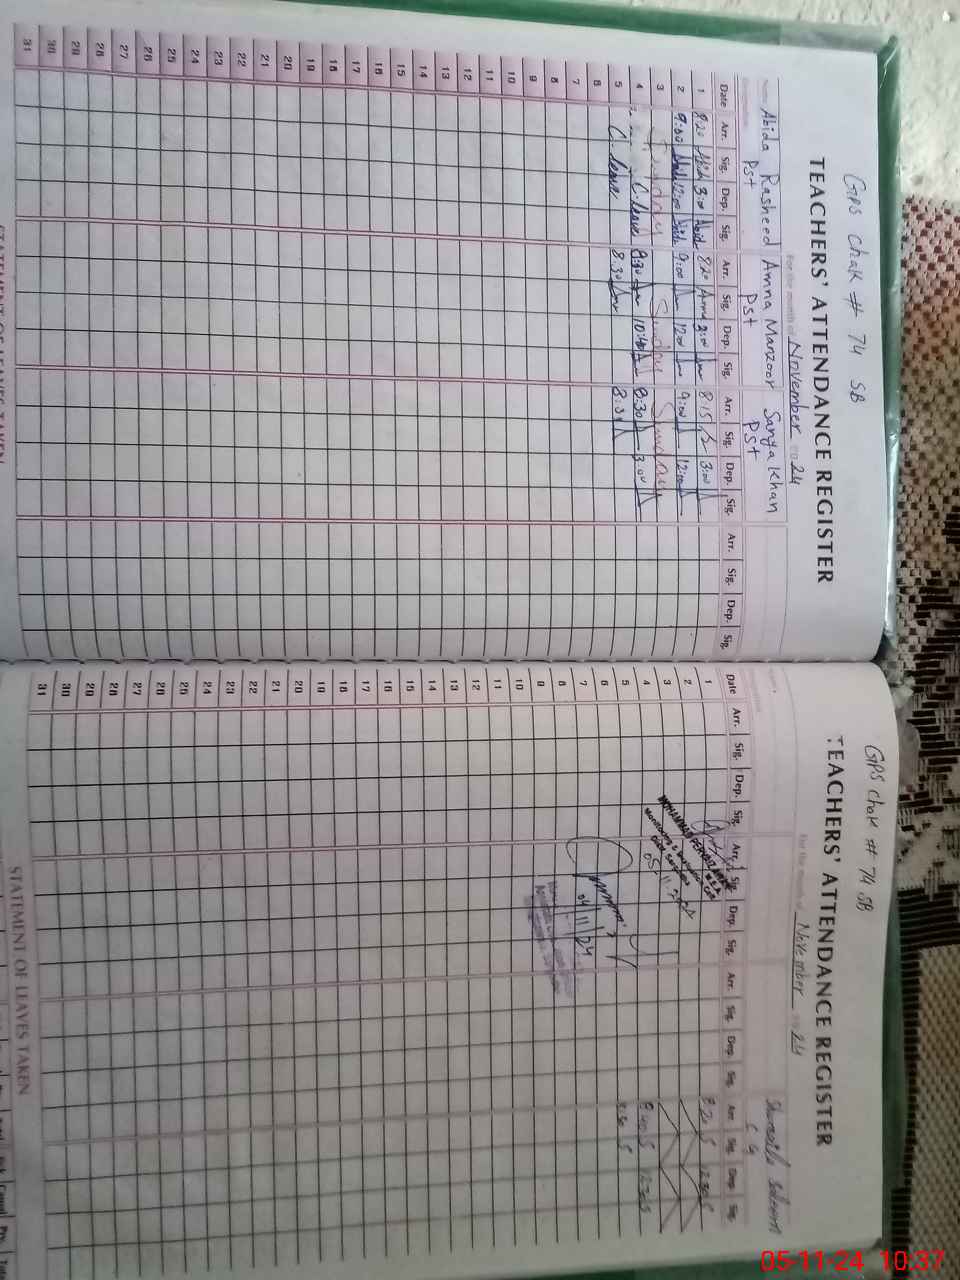 GPS Chak # 74 SB
TEACHERS' ATTENDANCE REGISTER
For the month of November 20 24
Name Abida Rasheed Amna Manzoor Sanya Khan
Designation Pst Pst Pst
Date Arr. Sig. Dep. Sig. Arr. Sig. Dep. Sig. Arr. Sig. Dep. Sig. Arr. Sig. Dep. Sig.
1 8:20 Abida 3:00 Abida 8:20 Amna 3:00 8:15 3:00
2 9:00 12:00 9:00 12:00 9:00 12:00
3 Sunday Sunday Sunday
4 C. leave 8:30 10:40 8:30 3:00
5 C. leave 8:30 8:30
6
7
8
9
10
11
12
13
14
15
16
17
18
19
20
21
22
23
24
25
26
27
28
29
30
31
STATEMENT OF LEAVES TAKEN
GPS Chak # 74 SB
TEACHERS' ATTENDANCE REGISTER
For the month of November 20 24
C G
Date Arr. Sig. Dep. Sig. Arr. Sig. Dep. Sig. Arr. Sig. Dep. Sig. Arr. Sig. Dep. Sig.
1 8:20 S 12:30 S
2
3
4 8:40 S 12:30 S
5 S
6
7
8
9
10
11
12
13
14
15
16
17
18
19
20
21
22
23
24
25
26
27
28
29
30
31
MOHAMMAD
Monitoring &
05-11-2024
04/11/24
STATEMENT OF LEAVES TAKEN
05-11-24 10:37